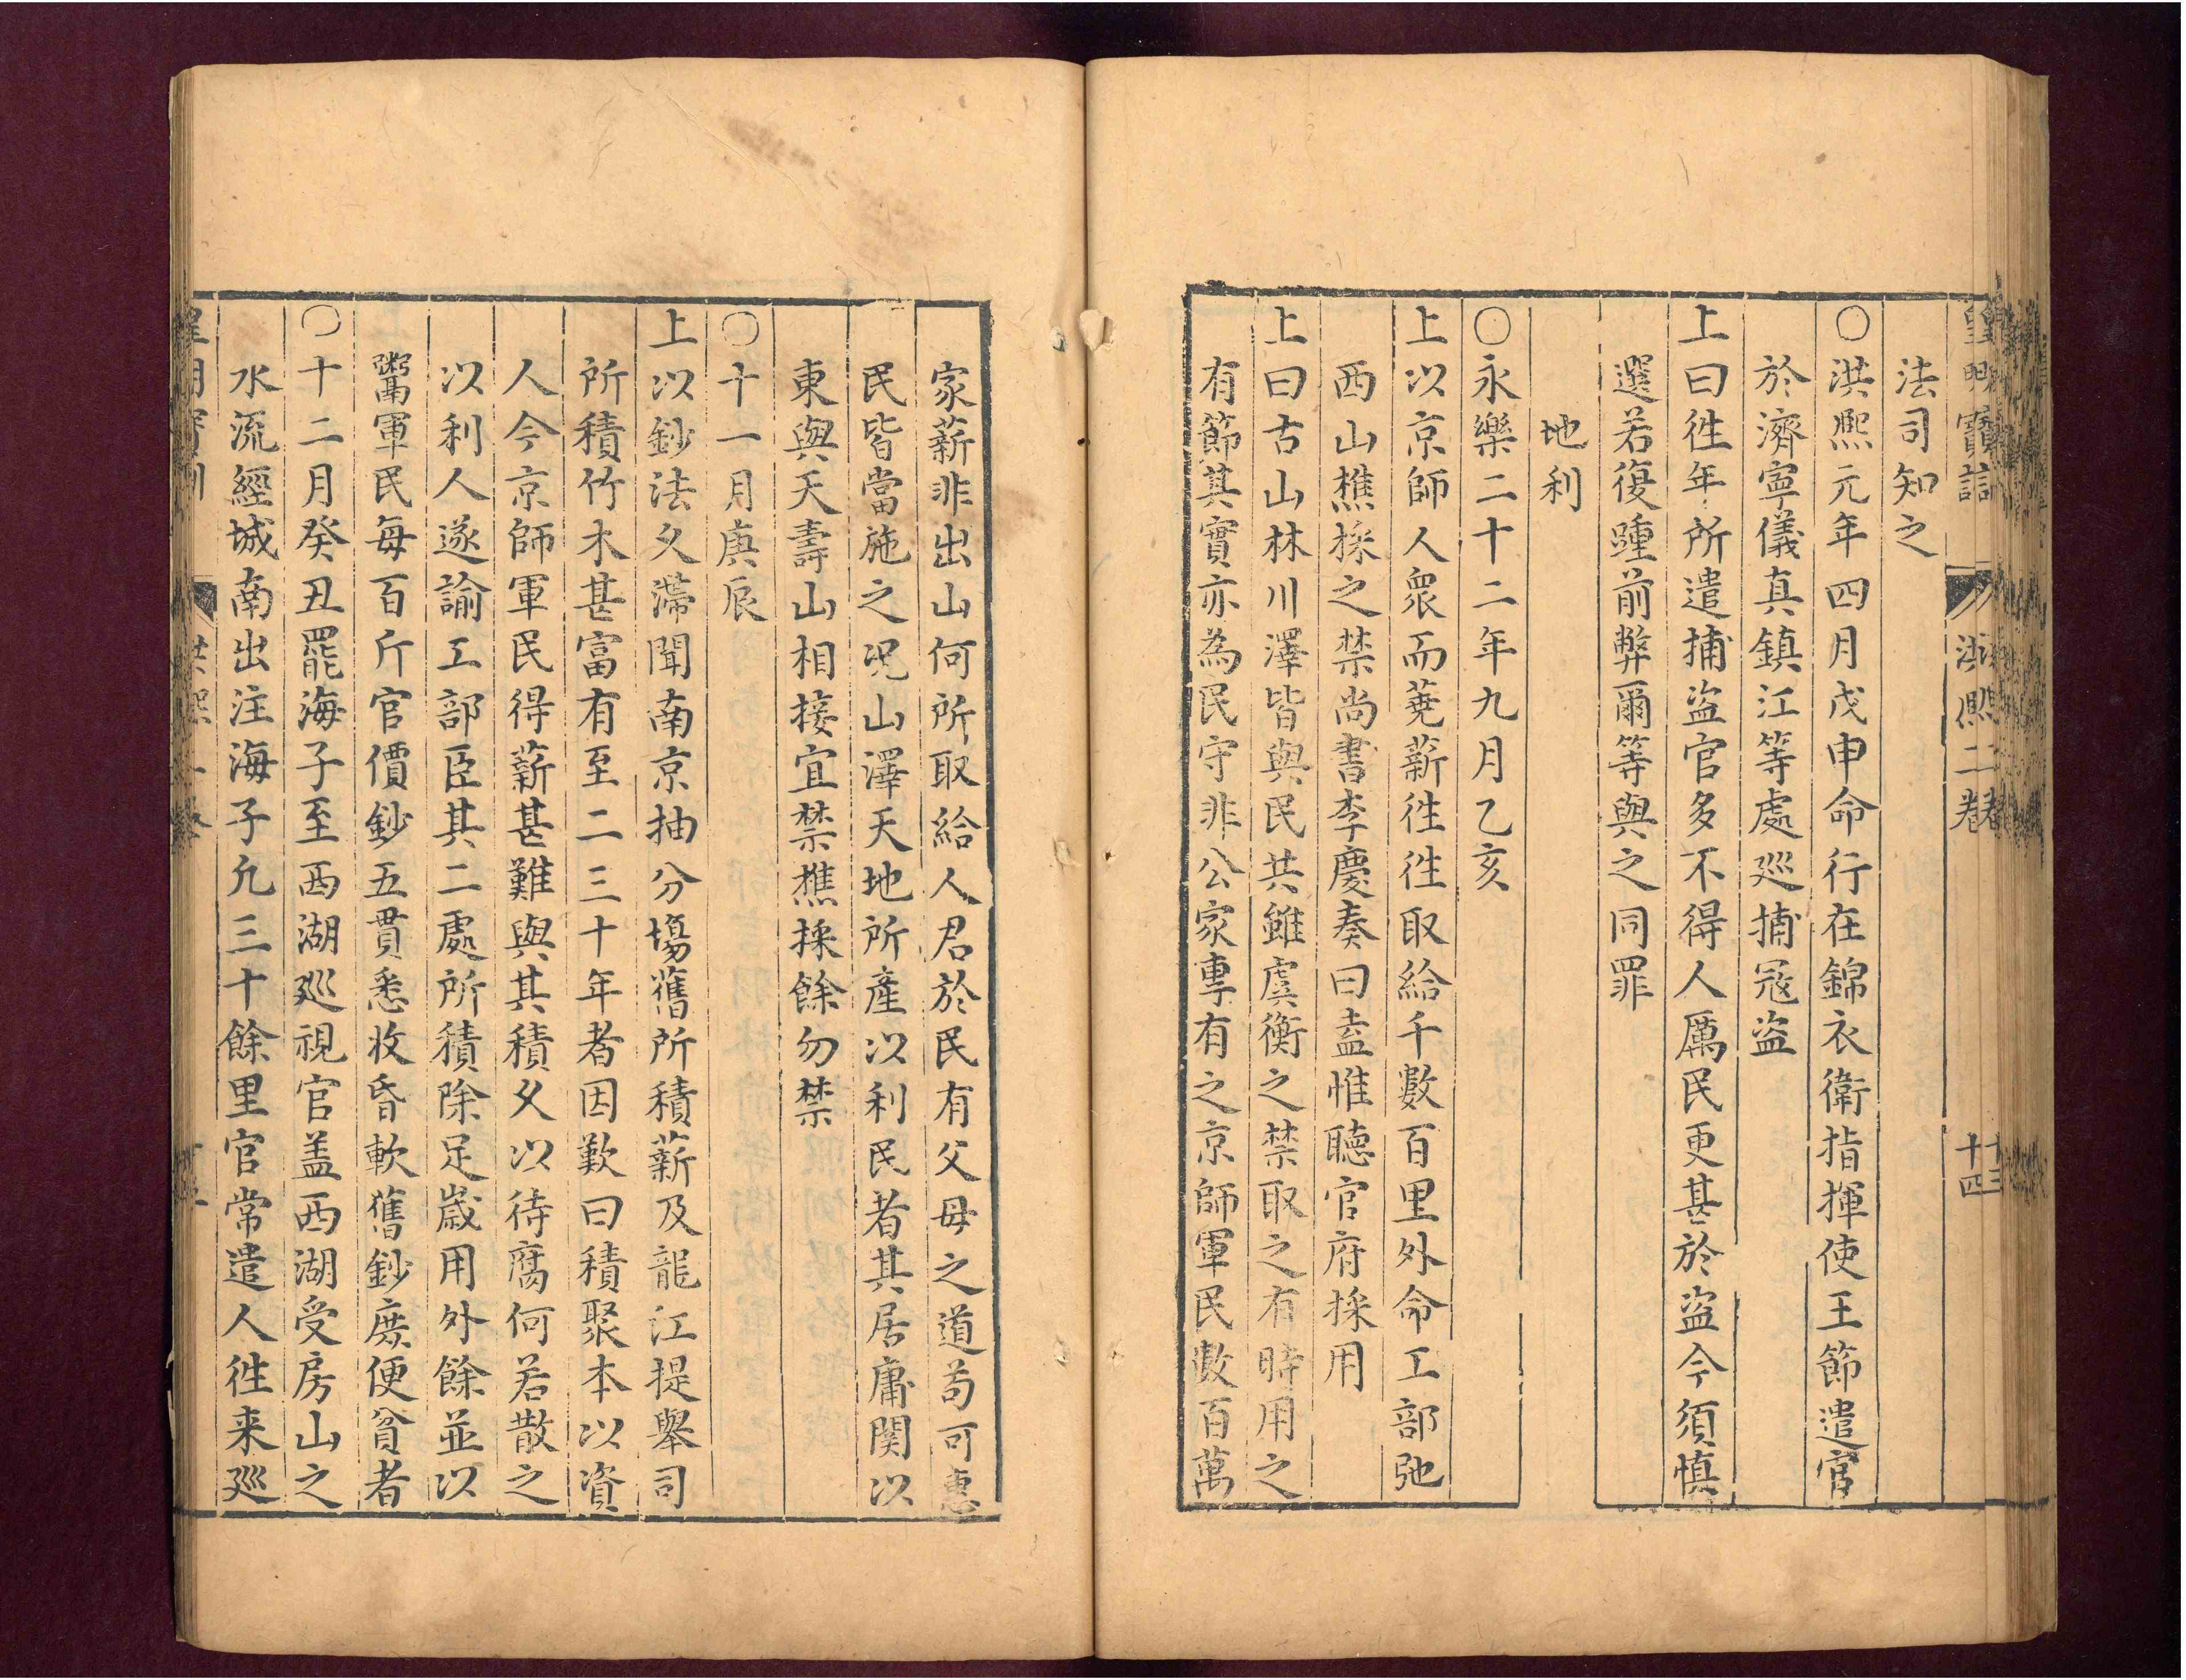 皇明寶訓 洪熙二卷 十四
法司知之
〇洪熙元年四月戊申命行在錦衣衛指揮使王節遣官
於濟寧儀真鎮江等處廵捕冦盗
上曰徃年所遣捕盗官多不得人厲民更甚於盗今須慎
選若復踵前弊爾等與之同罪
地利
〇永樂二十二年九月乙亥
上以京師人衆而薪徃徃取給千數百里外命工部弛
西山樵採之禁尚書李慶奏曰盍惟聽官府採用
上曰古山林川澤皆與民共雖虞衡之禁取之有時用之
有節其實亦為民守非公家専有之京師軍民數百萬
家薪非出山何所取給人君於民有父母之道苟可惠
民皆當施之况山澤天地所產以利民者其居庸関以
東與天壽山相接宜禁樵採餘勿禁
〇十一月庚辰
上以鈔法久滯聞南京抽分塲舊所積薪及龍江提舉司
所積竹木甚富有至二三十年者因歎曰積聚本以資
人今京師軍民得薪甚難與其積久以待腐何若散之
以利人遂諭工部臣其二處所積除足歲用外餘並以
鬻軍民每百斤官價鈔五貫悉收昏軟舊鈔庶便貧者
〇十二月癸丑罷海子至西湖廵視官盖西湖受房山之
水流經城南出注海子凡三十餘里官常遣人徃来廵